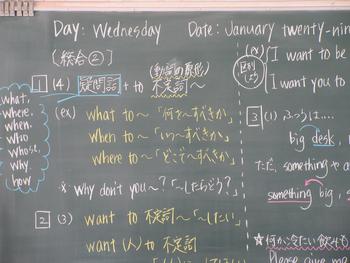 Day: Wednesday Date: January twenty-nin
(総合②)
1 (4) 疑問詞 + to 不定詞～
(動詞の原形)
what,
where.
when.
who
whose,
why
how
(ex) what to～「何を～すべきか」
when to～「いつ～すべきか」
where to～「どこで～すべきか」
※ why don't you～?「～したらどう?」
2 (3) want to 不定詞～「～したい」
want (人) to 不定詞
(ex)
I want to be
I want you to
3 (1) ふつうは……
big desk,
ただ、something や a
something big,
☆何か冷たい飲みも
Please give me